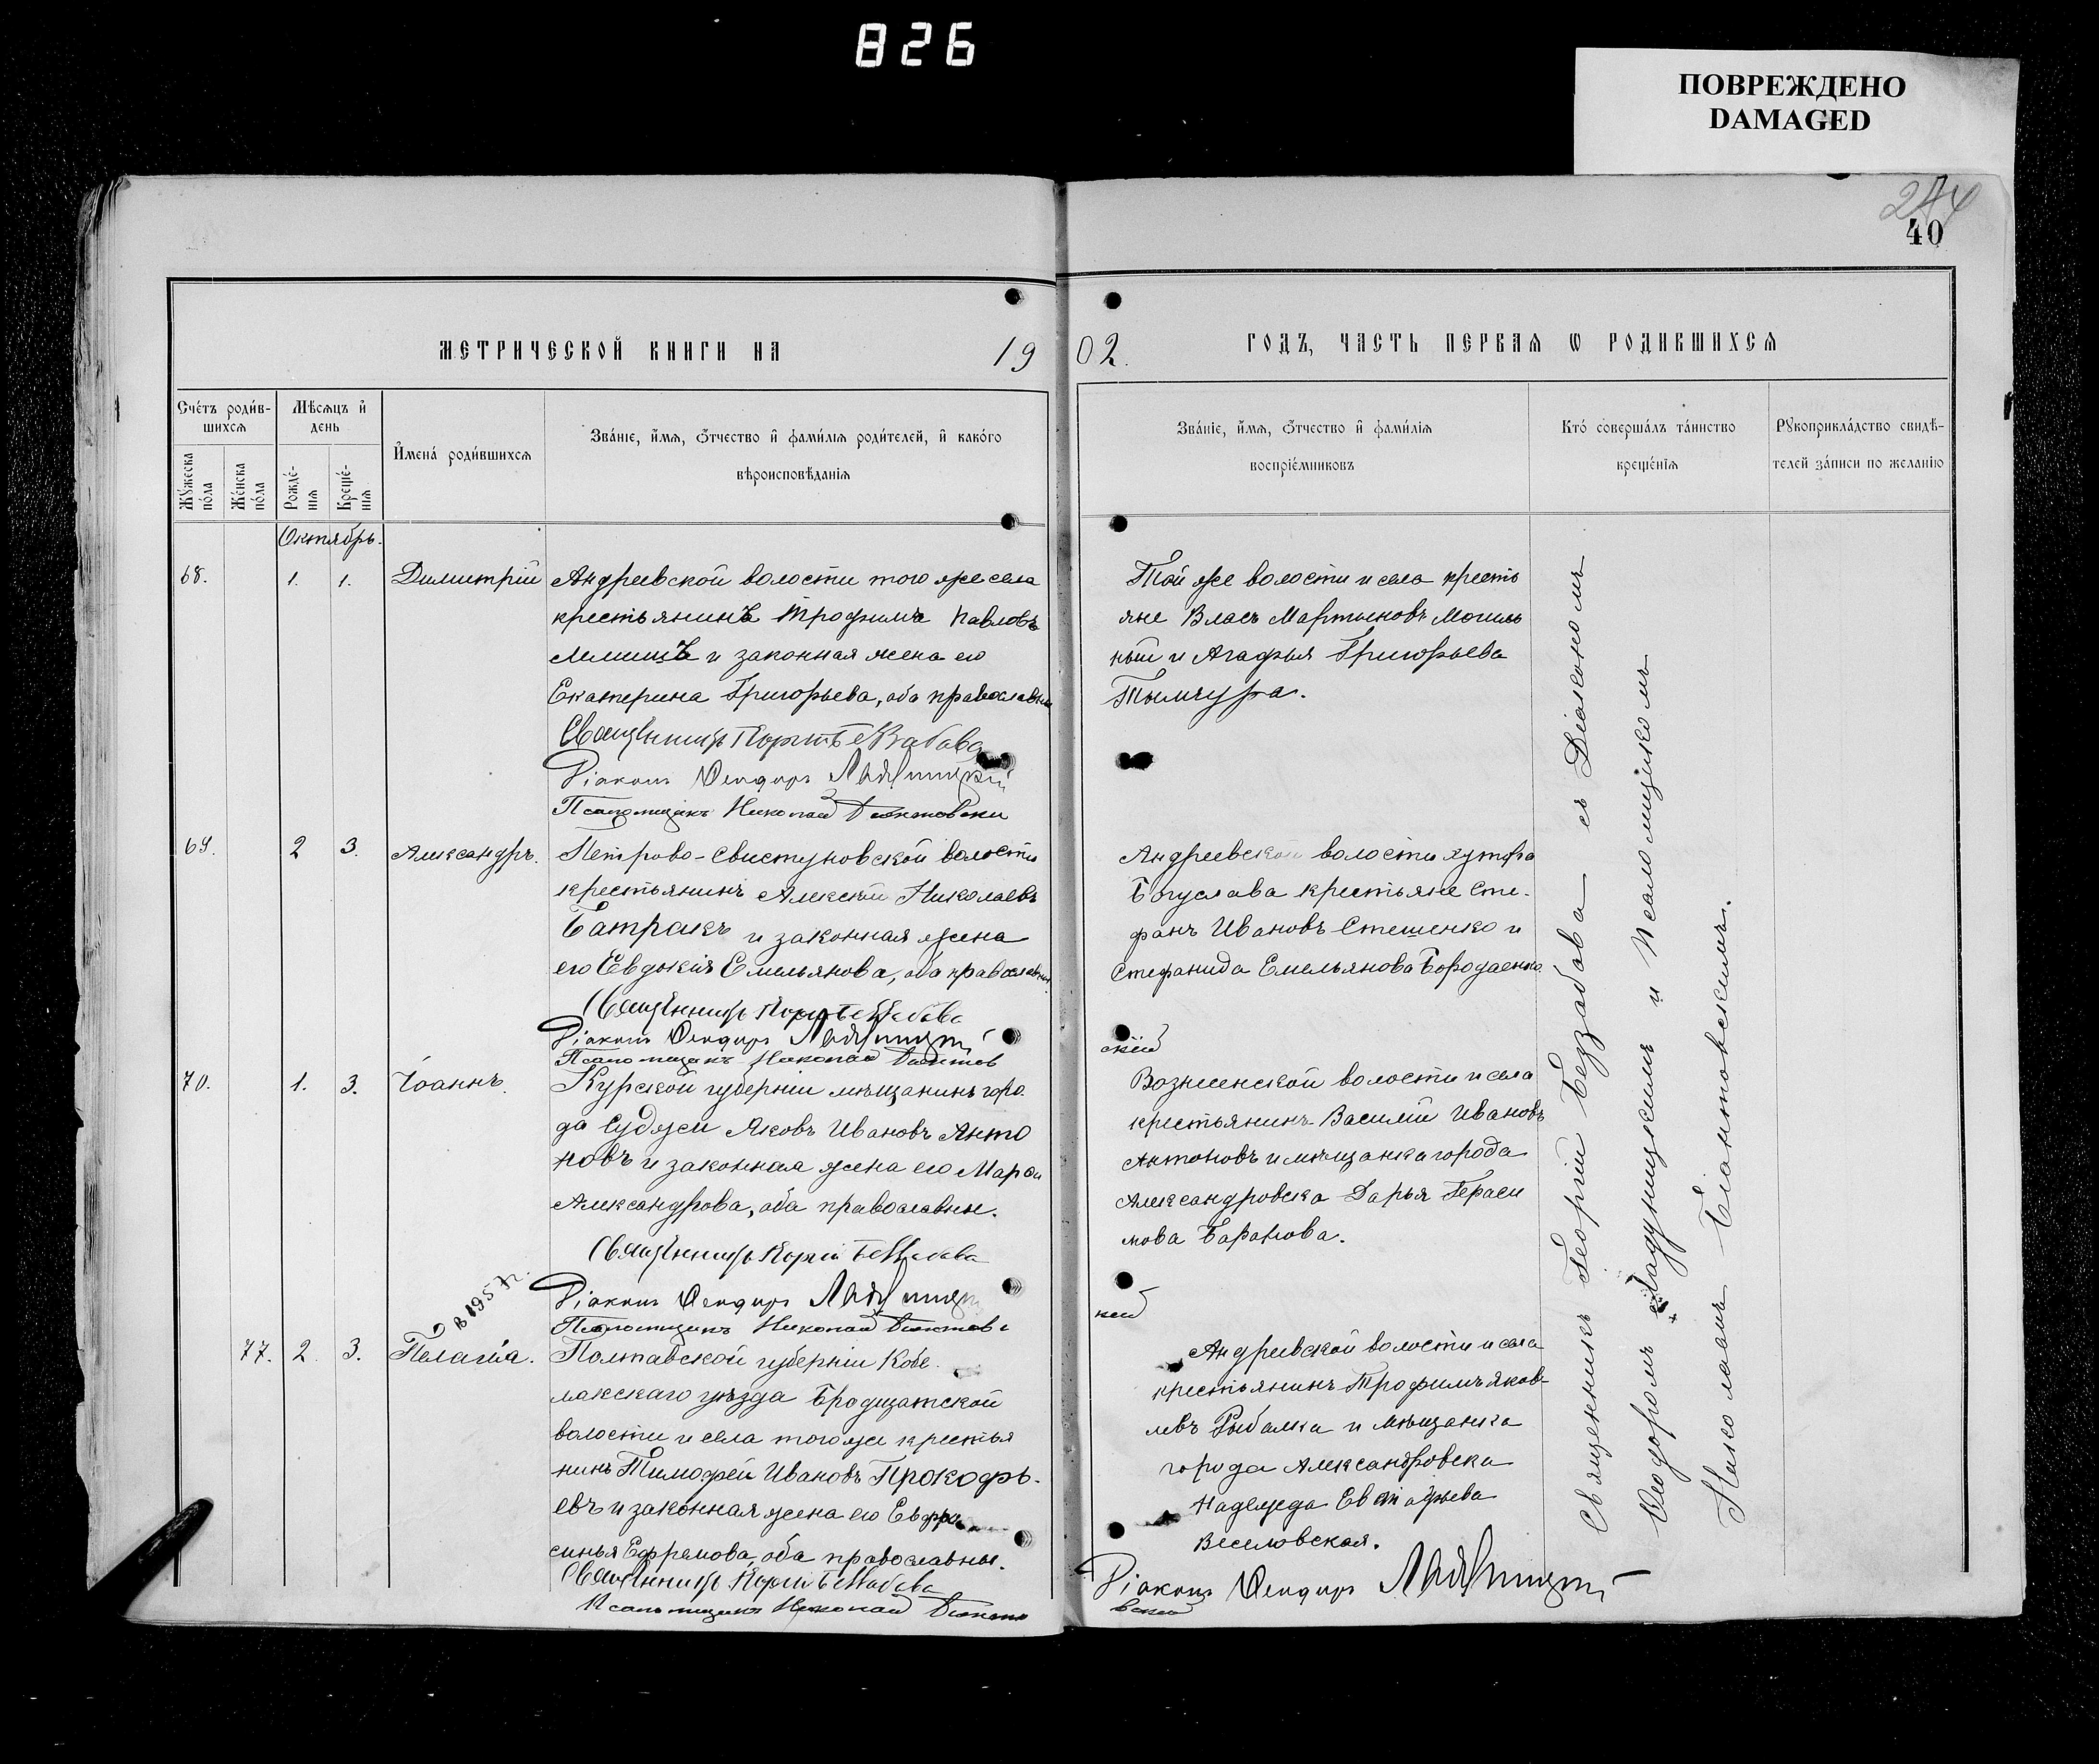 826
ПОВРЕЖДЕНО
DAMAGED
274
40
МЕТРИЧЕСКОЙ КНИГИ НА 19
02. ГОДЪ, ЧАСТЬ ПЕРВАЯ Ѡ РОДИВШИХСЯ
Счётъ роди́в-
шихся
Му́жеска по́ла
Же́нска по́ла
Мѣ́сяцъ и҆ день
Рожде́-
нія
Креще́-
нія
И҆мена́ роди́вшихся
Зва́ніе, и҆́мя, ѻ҆́тчество и҆ фами́лія роди́телей, и҆ како́го
вѣроисповѣ́данія
Зва́ніе, и҆́мя, ѻ҆́тчество и҆ фами́лія
воспріе́мниковъ
Кто̀ соверша́лъ та́инство
креще́нія
Рꙋкоприкла́дство свидѣ́-
телей за́писи по жела́нію
Октябрь.
68. 1. 1. Димитрій
Андреевской волости того же села
крестьянинъ Трофимъ Павловъ
и законная жена его
Екатерина Григорьева, оба православны
Священникъ Георгій Беззабава
Діаконъ Ѳеодоръ Ладухницкій
Псаломщикъ Николай
Той же волости и села кресть
яне Власъ Мартыновъ Могиль
ный и Агафья Григорьева
Тымчура.
69. 2 3. Александръ.
Петрово-Свистуновской волости
крестьянинъ Алексій Николаевъ
Батракъ и законная жена
его Евдокія Емельянова, оба православны
Священникъ Георгій Беззабава
Діаконъ Ѳеодоръ
Псаломщикъ Николай
скій
Андреевской волости хутора
Богуслава крестьяне Сте-
фанъ Ивановъ Стешенко и
Стефанида Емельянова Бородаенко
70. 1. 3. Іоаннъ.
Курской губерніи мѣщанинъ горо
да Суджи Яковъ Ивановъ Анто
новъ и законная жена его Марфа
Александрова, оба православны.
Священникъ Георгій Беззабава
Діаконъ Ѳеодоръ
Псаломщикъ Николай
кій
Вознесенской волости и села
крестьянинъ Василій Ивановъ
Антоновъ и мѣщанка города
Александровска Дарья Гераси
мова Баранова.
в 1957г.
77. 2. 3. Пелагія.
Полтавской губерніи Кобе
лякскаго уѣзда Бродщатской
волости и села того же крестья
нинъ Тимофей Ивановъ Прокофь-
евъ и законная жена его Евфро
синья Ефремова, оба православны.
Священникъ Георгій Беззабава
Псаломщикъ Николай
вскій
Андреевской волости и села
крестьянинъ Трофимъ Яков-
левъ Рыбалка и мѣщанка
города Александровска
Надежда Евстафьева
Веселовская.
Діаконъ Ѳеодоръ
Священникъ Георгій Беззабава съ Діакономъ
Ѳеодоромъ Ладухницкимъ и Псаломщикомъ
Николаемъ